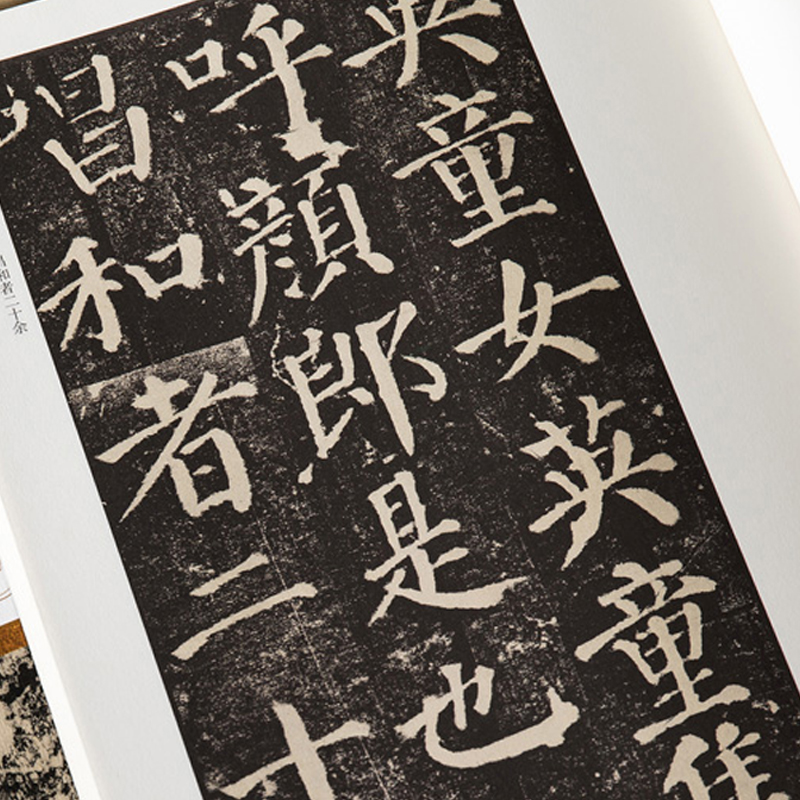 英童女英童集
呼顔郎是也
唱和者二十
唱和者二十余